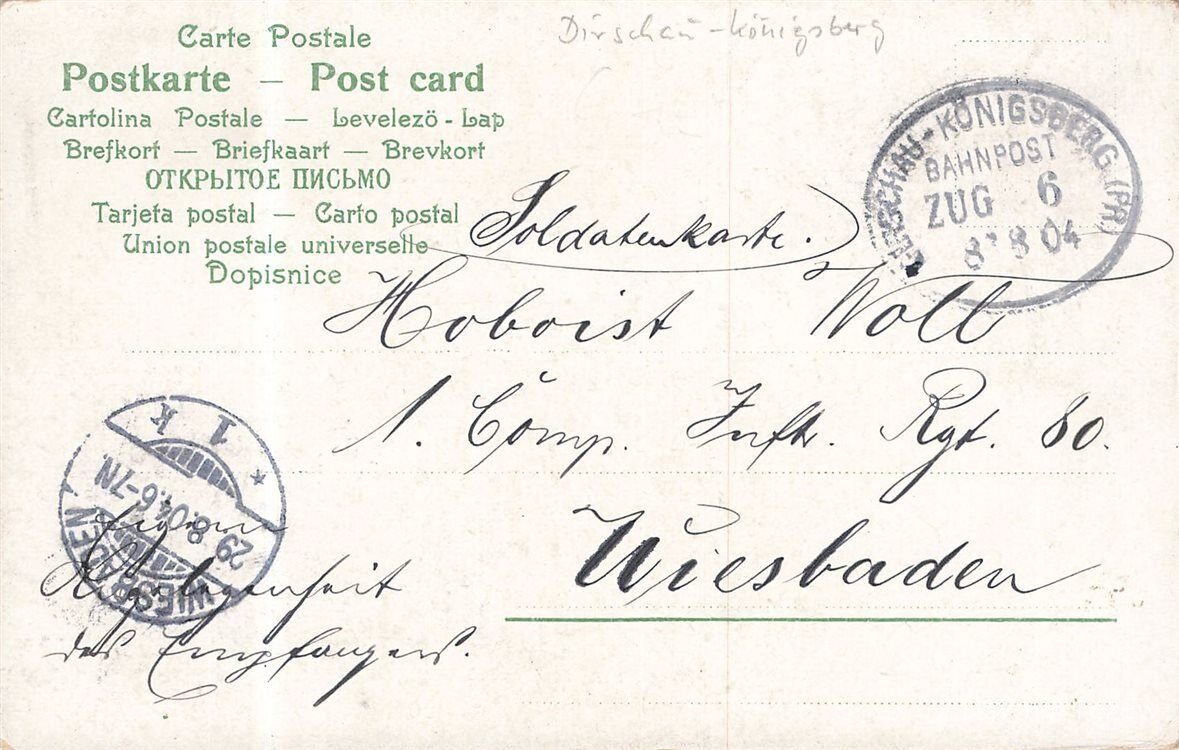 Dirschau - Königsberg
Carte Postale
Postkarte — Post card
Cartolina Postale — Levelezö - Lap
Brefkort — Briefkaart — Brevkort
ОТКРЫТОЕ ПИСЬМО
Tarjeta postal — Carto postal
Union postale universelle
Dopisnice
DIRSCHAU-KÖNIGSBERG (PR)
BAHNPOST
ZUG 6
8 04
Soldatenkarte.
Hoboist Woll
1. Comp. Inftr. Rgt. 80.
Wiesbaden
WIESBADEN
* 1 K
29.8.04.6-7N
Eigene
Angelegenheit
des Empfängers.